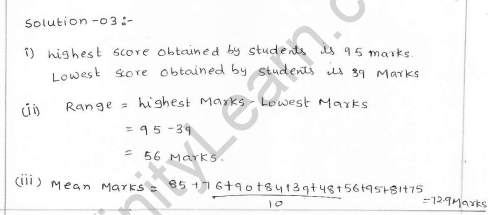 Solution -03 :-
i) highest score obtained by students is 95 marks.
Lowest score obtained by students is 39 Marks
(ii) Range = highest Marks - Lowest Marks
= 95 - 39
= 56 Marks.
(iii) Mean Marks = 85 + 76 + 90 + 84 + 39 + 48 + 56 + 95 + 81 + 75
10
= 72.9 Marks